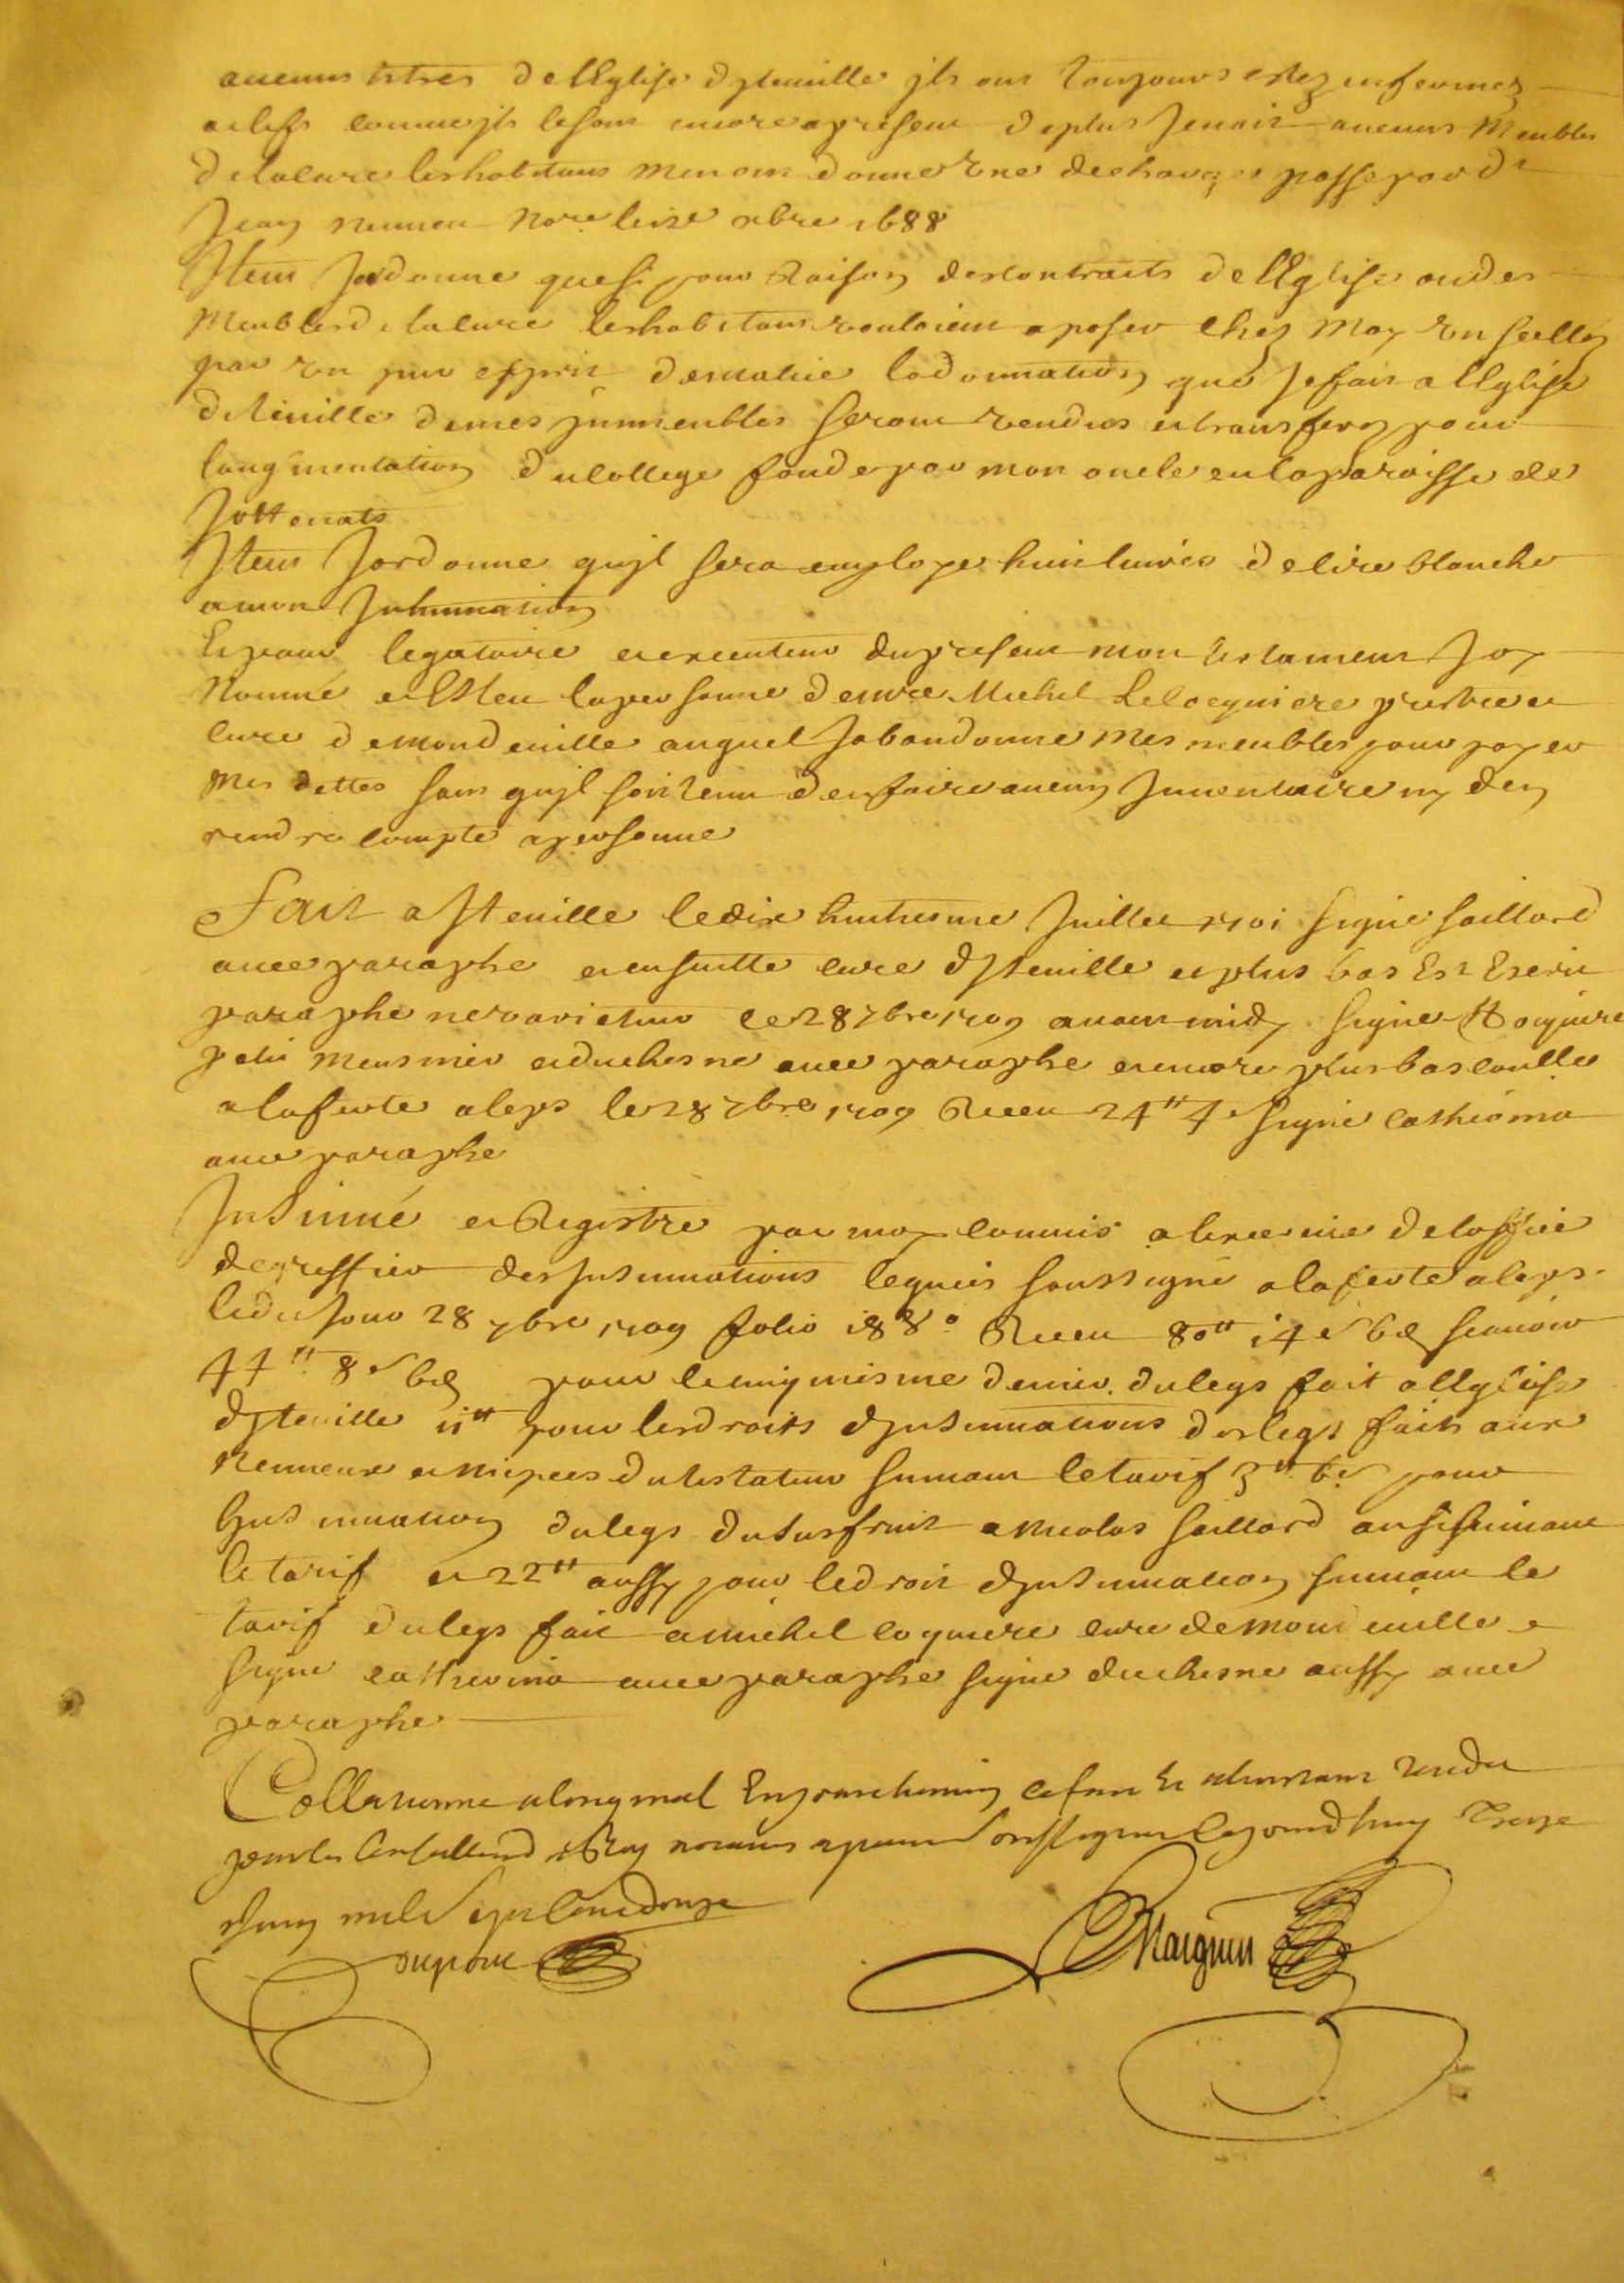 aucuns titres de lEglise dytteuille jls ont tousjours estez enfermez
a clefs comme jls le sont encore a present de plus jenaiz aucuns Meubles
de la cure les habitans men ont donne vne descharge passe pard.t
Jean no.re le 9bre 1688
Item Jordonne que si pour Raison des contraits de lEglise ou des
Meubles de la cure les habitans vouloient aposer chez Moy vn scellez
par vn pur esprit de malice la donnation que je fais a lEglise
ditteuille de mes jmmeubles seront vendus et transferez pour
laugmentation du college fonde par mon oncle en la paroisse de
Item Jordonne qujl sera employe huit liures de cire blanche
a mon Inhumation
Et pour legataire et executeur du present mon testament Joy
Nommé et Esleu la personne de m.re Michel Locquiere prestre et
cure de mondeuille auquel Jabandonne Mes meubles pour payer
Mes dettes sans qujl soit tenu den faire aucun Inuentaire ny den
rendre compte a personne
Fait a Jtteuille le dix huitiesme Juillet 1701 signe saillard
auec paraphe et ensuitte cure dJtteuille et plus bas Est Escrit
paraphe ne varietur ce 28 7bre 1709 auant midy signe Locquiere
petit Meusnier et duchesne auec paraphe et encore plus bas controllé
a la ferte aleps le 28 7bre 1709 Receu 24tt 4s signe cathéoma
auec paraphe
Insinué et Registre par moy commis a lexercice de loffice
de greffier des Insinuations legueis soussigne a la ferte aleps
ledit Jour 28 7bre 1709 folio 188.o Receu 80tt 14s 6d scauoir
44tt 8s 6d pour le cinquiesme denier du legs fait a leglise
djtteuille 11tt pour les droits djnsinuations des legs faits aux
Nepueux et niepces du testateur suiuant le tarif 3tt 6s pour
linsinuation du legs dusufruit a nicolas saillard aussi suiuant
le tarif et 22tt aussy pour le droit djnsinuation suiuant le
tarif du legs fait a michel coquiere cure de mondeuille
signe auec paraphe signe duchesne aussy auec
paraphe
Collationne a loriginal En parchemin ce fait et a linstant Rendu
par les Con.ers du Roy notaires a paris soussignez ce jourdhuy Treize
Juin mil sept cent douze
Dupont